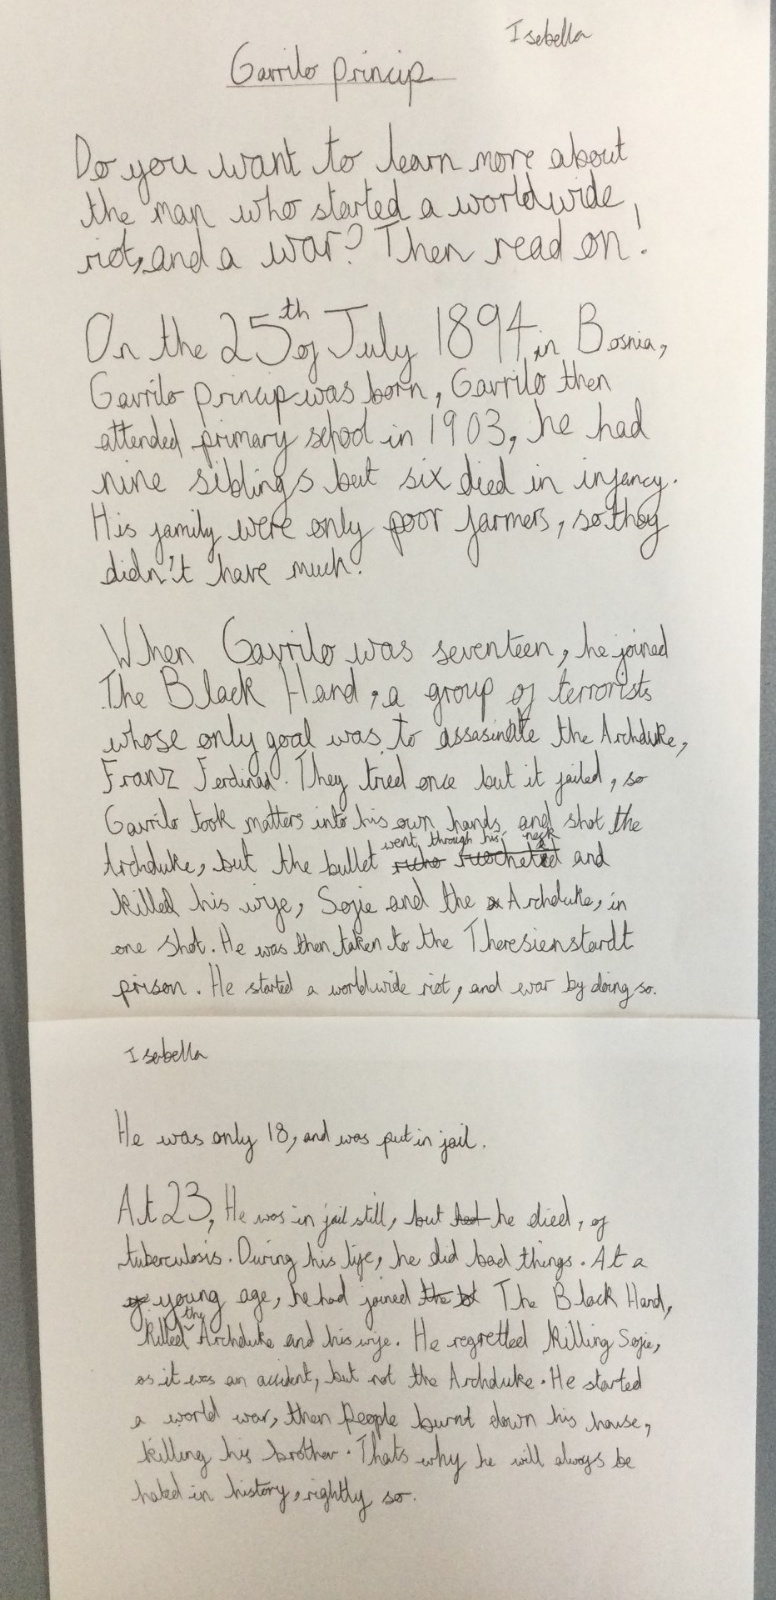 Isebella
Gavrilo Princip
Do you want to learn more about
the man who started a worldwide
riot, and a war? Then read on!
On the 25th of July 1894, in Bosnia,
Gavrilo Princip was born, Gavrilo then
attended primary school in 1903, he had
nine siblings but six died in infancy.
His family were only poor farmers, so they
didn't have much.
When Gavrilo was seventeen, he joined
The Black Hand, a group of terrorists
whose only goal was to assasinate the Archduke,
Franz Ferdinad. They tried once but it failed, so
Gavrilo took matters into his own hands, and shot the
went through his neck
Archduke, but the bullet richo riocheted and
killed his wife, Sofie and the Archduke, in
one shot. He was then taken to the Theresienstardt
prison. He started a worldwide riot, and war by doing so.
Isabella
He was only 18, and was put in jail.
At 23, He was in jail still, but had he died, of
tuberculosis. During his life, he did bad things. At a
young age, he had joined the bl The Black Hand,
the
killed Archduke and his wife. He regretted killing Sofie,
as it was an accident, but not the Archduke. He started
a world war, then people burnt down his house,
killing his brother. Thats why he will always be
hated in history, rightly so.